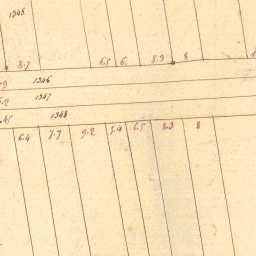 1345
8.7 6.5 6. 8.9 8
1346
1347
1348
6.4 7.9 9.2 5.4 6.5 8.3 8